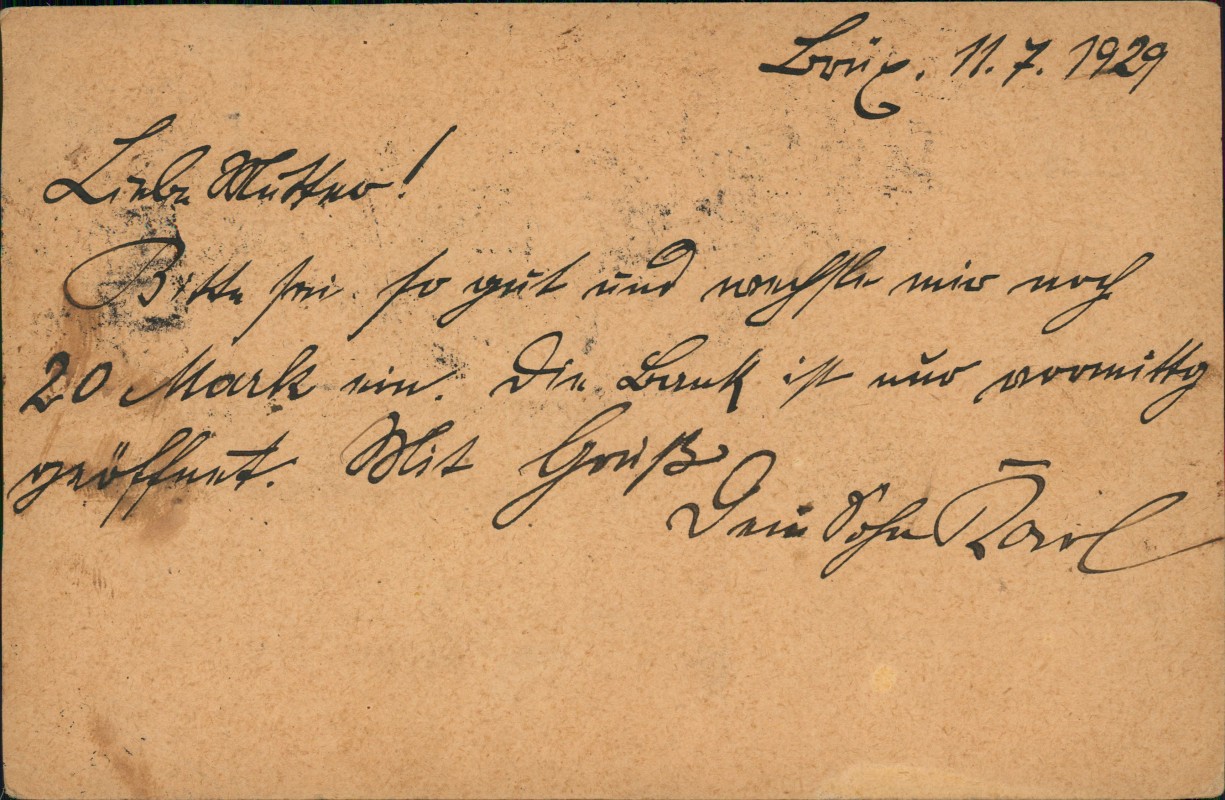 Brüx. 11. 7. 1929
Liebe Mutter!
Bitte sei so gut und wechsle mir noch
20 Mark ein. Die Bank ist nur vormittg
geöffnet. Mit Gruß
Dein Sohn Karl